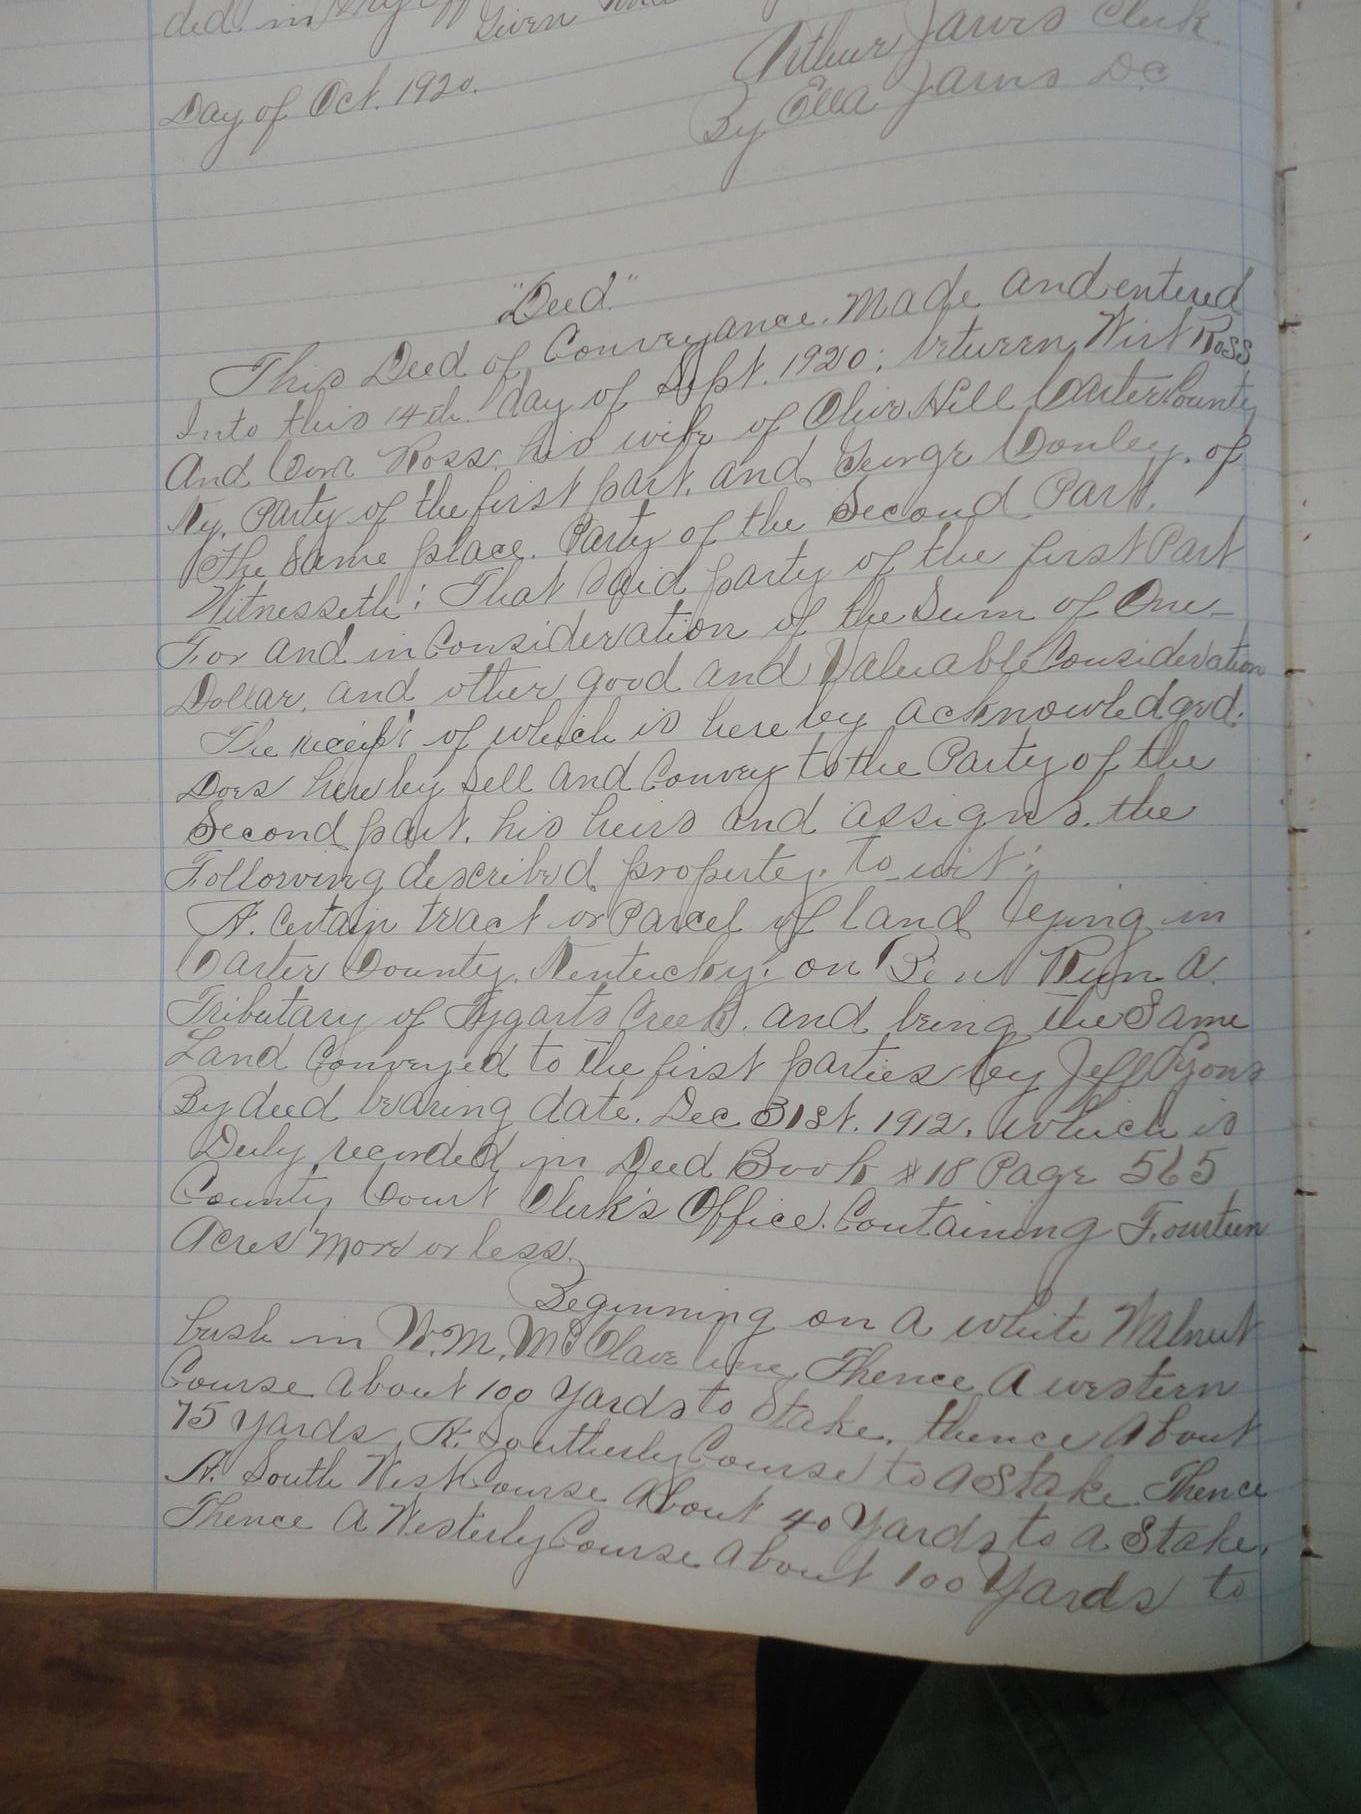 ded. in my
Given
Arthur Jarvis Clerk
Day of Oct. 1920.
By Ella Jarvis D.C
"Deed"
This Deed of Conveyance. Made and entered
Into this 14th. day of Sept. 1920; between, Wirt Ross
And Cora Ross. his wife of Olive Hill Carter County
Ky, Party of the first part. and George Conley. of
The Same place. Party of the Second Part.
Witnesseth: That Said party of the first Part
For and in Consideration of the Sum of One
Dollar. and other good and Valuable Consideration
The receipt of which is here by acknowledged.
Does here by Sell and Convey to the Party of the
Second part. his heirs and assigns. the
Following described property. to wit:
A. Certain tract or Parcel of land lying in
Carter County. Kentucky. on Bent Run A.
Tributary of Tygarts Creek. and being the Same
Land Conveyed to the first parties by Jeff Lyons
By deed bearing date. Dec. 31st. 1912. which is
Duly recorded in Deed Book #18 Page 565
County Court Clerk's Office. Containing Fourteen
Acres more or less.
Beginning on A white Walnut
bush in W.M. McClave line, Thence A western
Course About 100 Yards to Stake. thence About
75 Yards A. Southerly Course to A Stake. Thence
A. South West Course About 40 Yards to a Stake.
Thence A Westerly Course About 100 Yards to